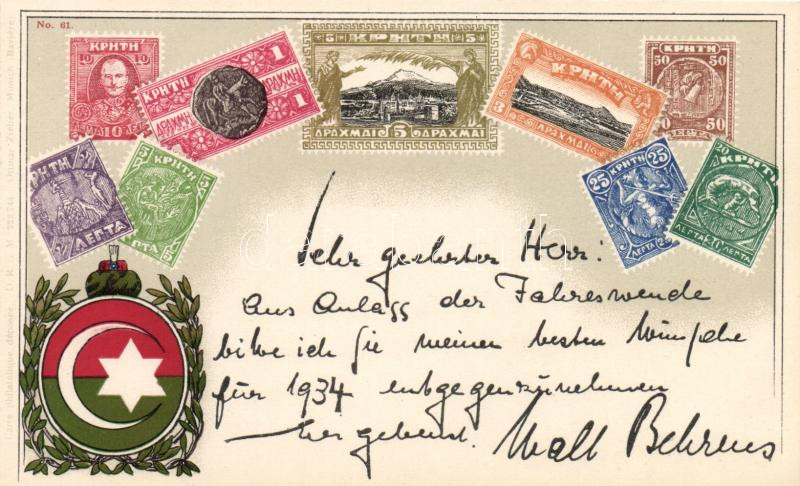 No. 61.
ΚΡΗΤΗ
10 10
ΚΡΗΤΗ 1
1
5 ΚΡΗΤΗ 5
ΔΡΑΧΜΑΙ 5 ΔΡΑΧΜΑΙ
ΚΡΗΤΗ
3 ΔΡΑΧΜΑΙ
50 ΚΡΗΤΗ 50
50
ΚΡΗΤΗ
2 ΛΕΠΤΑ
5 ΚΡΗΤΗ 5
5
25 ΚΡΗΤΗ 25
ΛΕΠΤΑ
20 ΚΡΗΤΗ
ΛΕΠΤΑ 20 ΛΕΠΤΑ
Sehr geehrter Herr!
Aus Anlass der Jahreswende
bitte ich Sie meinen besten Wünsche
für 1934 entgegenzunehmen
— Ergebenst. Walt Behrens
Carte philatélique, déposée. D. R. G. M.
darabanth